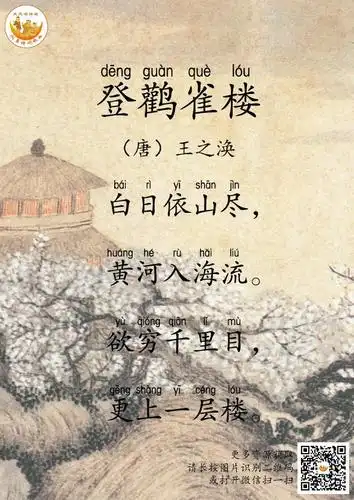 dēng guàn què lóu
登鹳雀楼
（唐）王之涣
bái rì yī shān jìn
白日依山尽，
huáng hé rù hǎi liú
黄河入海流。
yù qióng qiān lǐ mù
欲穷千里目，
gèng shàng yī céng lóu
更上一层楼。
更多资源获取
请长按图片识别二维码
或打开微信扫一扫